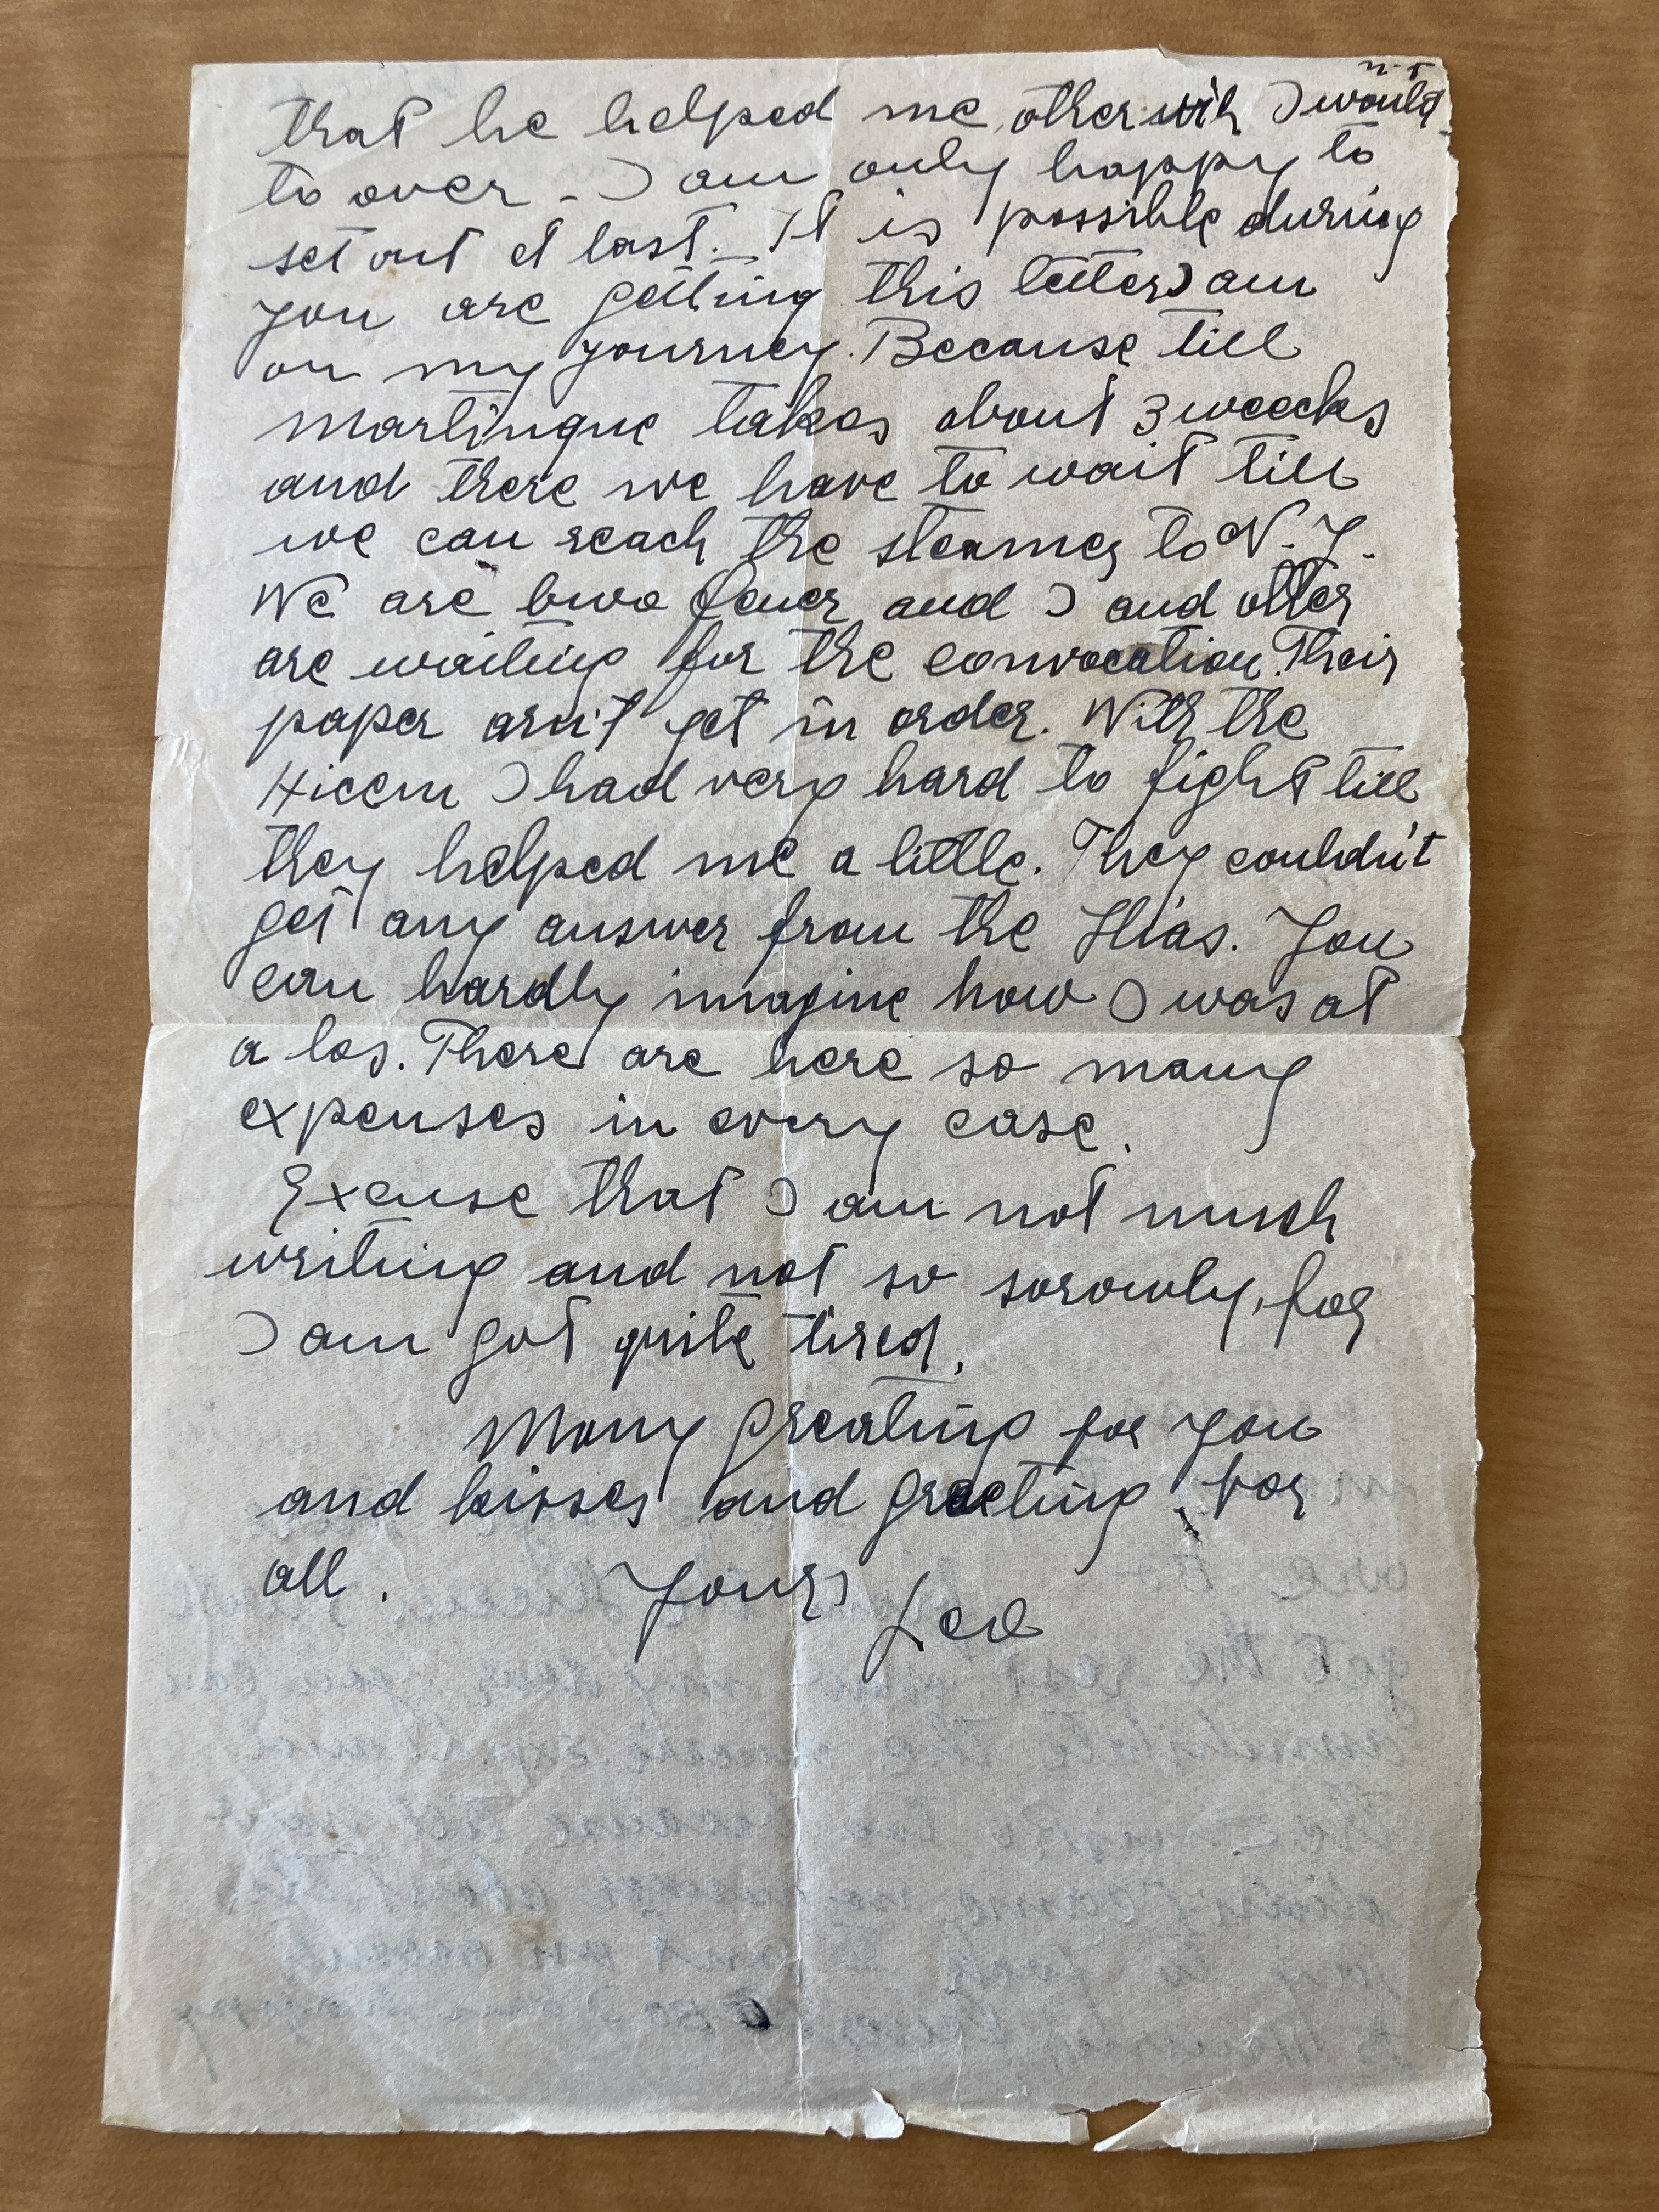 that he helped me, otherwih I would n't
to over - I am only happy to
set out et last. - It is possible during
you are getting this letter I am
on my yourney. Because till
Martinque takes about 3 weecks
and there we have to wait till
we can reach the steamer to N. Y.
We are two and I and otter
are waiting for the convocation. Their
paper arn't yet in order. With the
Hicem I had very hard to fight till
they helped me a little. They couldn't
get any answer from the Hias. You
can hardly imagine how I was at
a los. There are here so many
expenses in every case.
Excuse that I am not much
writing and not so sorowly, for
I am got quite tired,
Many greating for you
and kisses and greeting for
all. Yours
Leo